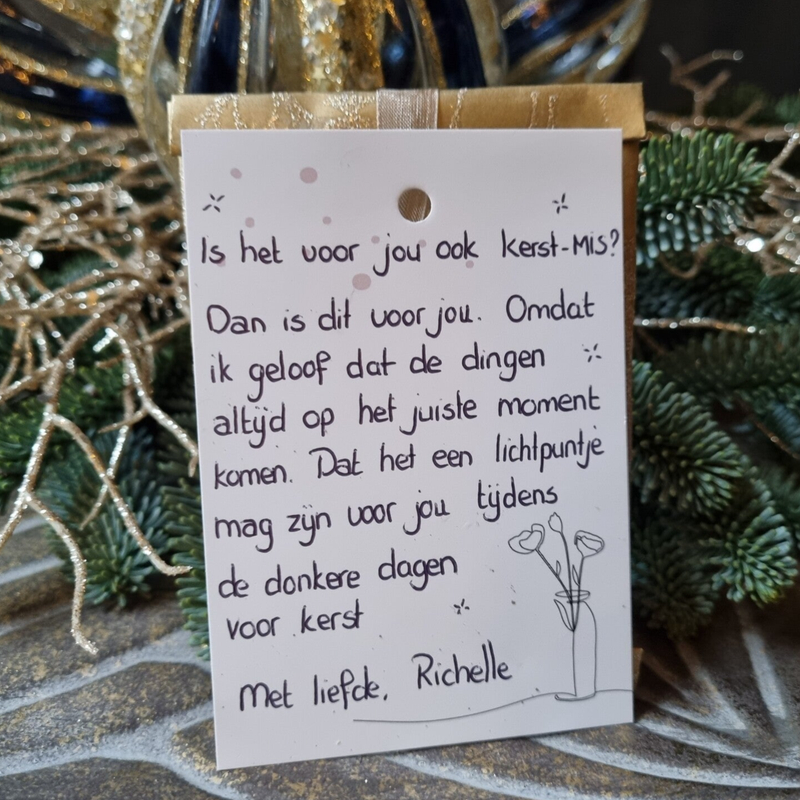 Is het voor jou ook kerst-MIS?
Dan is dit voor jou. Omdat
ik geloof dat de dingen
altijd op het juiste moment
komen. Dat het een lichtpuntje
mag zijn voor jou tijdens
de donkere dagen
voor kerst
Met liefde, Richelle